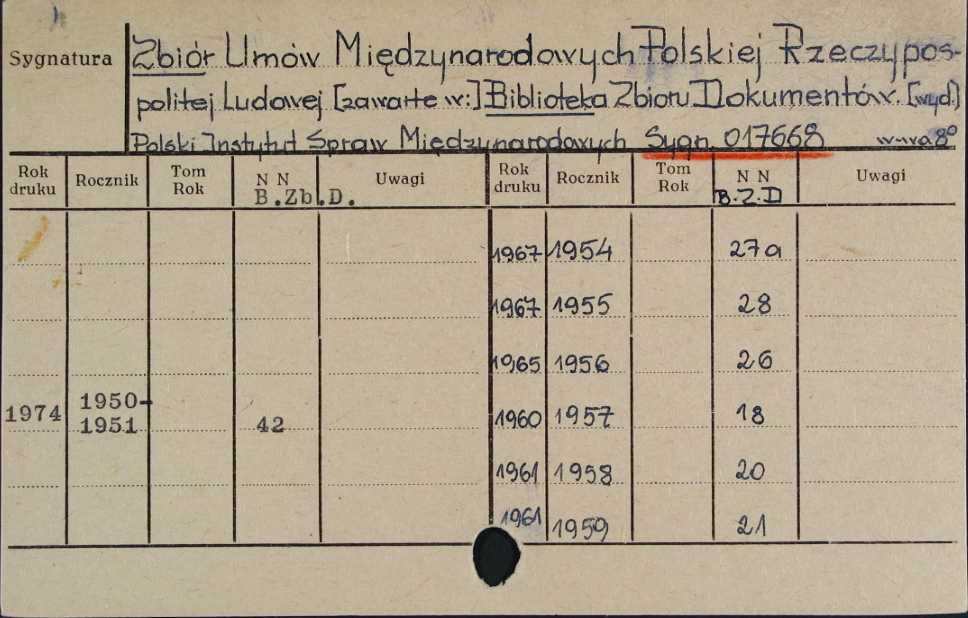 Sygnatura
Zbiór Umów Międzynarodowych Polskiej Rzeczypos-
politej Ludowej [zawarte w:] Biblioteka Zbioru Dokumentów. [wyd.]
Polski Instytut Spraw Międzynarodowych Sygn. 017668 w-wa 8°
Rok druku Rocznik Tom Rok N N B.Zbl.D. Uwagi Rok druku Rocznik Tom Rok N N B.Z.D Uwagi
1967 1954 27a
1967 1955 28
1965 1956 26
1974 1950-1951 42 1960 1957 18
1961 1958 20
1961 1959 21